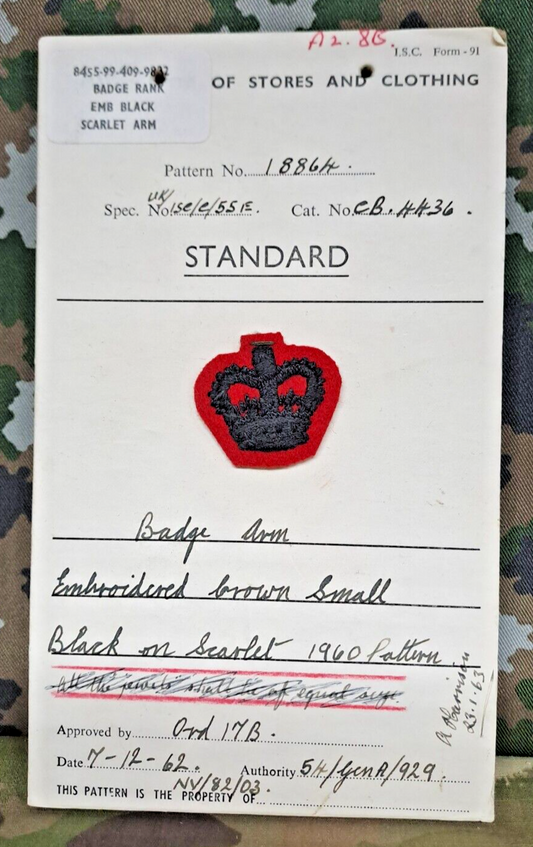 A2. 8B.
I.S.C. Form - 91
8455-99-409-9832
BADGE RANK
EMB BLACK
SCARLET ARM
OF STORES AND CLOTHING
Pattern No. 18864.
Spec. No. UK/ISC/C/551E. Cat. No. CB. 4436.
STANDARD
Badge Arm
Embroidered Crown Small
Black on Scarlet 1960 Pattern
all the jewels shall be of equal size.
Approved by Ord 17B.
Date 7-12-62. Authority 54/Gen A/929.
NV/82/03.
THIS PATTERN IS THE PROPERTY OF
Harrison
23.1.63